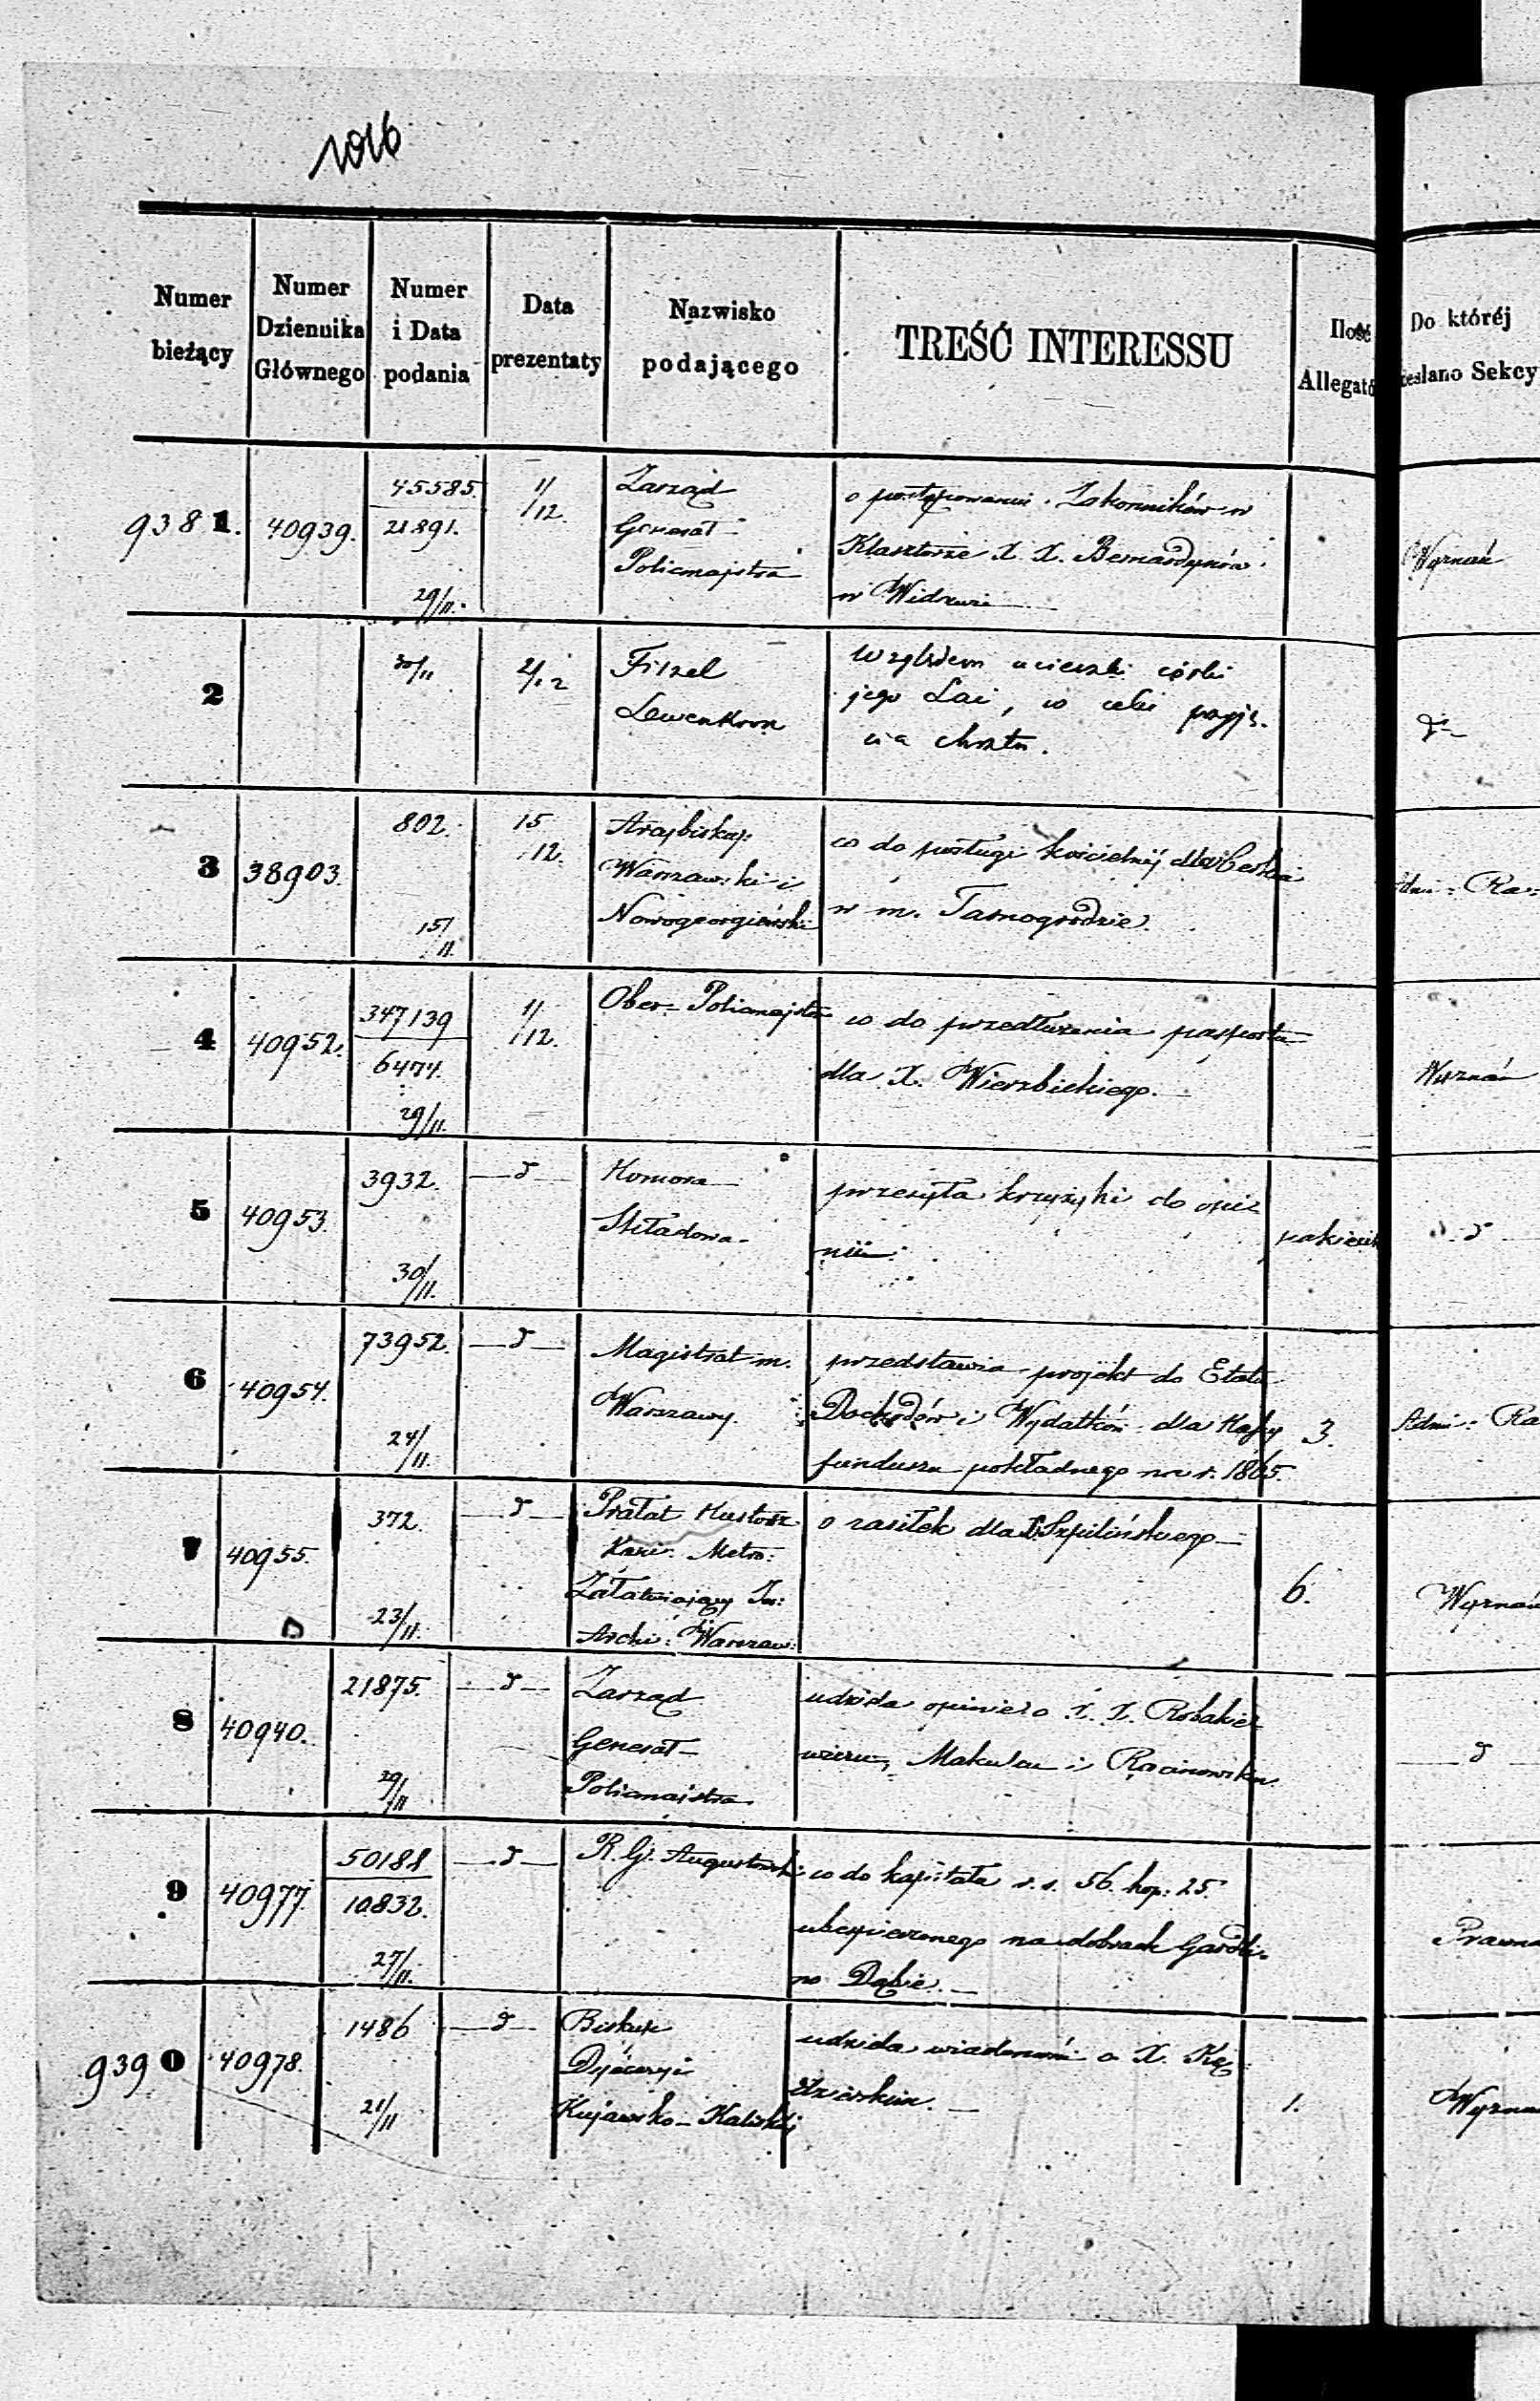 1016
Numer bieżący
Numer Dziennika Głównego
Numer i Data podania
Data prezentaty
Nazwisko podającego
TREŚĆ INTERESSU
Ilość Allegató
Do któréj
zesłano Sekcy
9381.
40939.
45585.
21891.
29/11.
1/12.
Zarząd
Generał
Policmajstra
o postępowaniu Zakonników w
Klasztorze X. X. Bernardynów
w Widawie
Wyznań
2
30/11
2/12
Fiszel
Lewenkron
Względem ucieczki córki
jego Lai, w celu przyję.
cia chrztu.
d
3
38903.
802.
15/11.
15
12.
Arcybiskup
Warszawski i
Nowogeorgiewski
co do posługi kościelnéj
w m. Tarnogrodzie.
Admi: Ra:
4
40952.
347139
6474.
29/11.
1/12.
Ober-Policmajster
co do przedłużenia paszportu
dla X. Wierzbickiego.
Wyznań
5
40953.
3932.
30/11.
d
Komora
Składowa
przesyła krzyżyki do opi-
nii
pakiecik
d
6
40954.
73952.
24/11.
d
Magistrat m.
Warszawy.
przedstawia projekt do Etatu
Dochodów i Wydatków dla Kassy
funduszu pokładnego na r. 1865.
3.
Admi: Ra
7
40955.
372.
23/11.
d
Prałat Kustosz
Kani: Metro:
Załatwiający In:
Archi: Warszaw:
o zasiłek dla X. Szpilińskiego
6.
Wyznań
8
40940.
21875.
29/11
d
Zarząd
Generał
Policmajstra
udziela opinie o X. X. Robakie-
wiczu, Makulcu i Racinowskim
d
9
40977.
50188
10832.
27/11.
d
R. G. Augustowski
co do kapitału r. s. 56. kop: 25.
ubezpieczonego na dobrach Gardli-
no Dąbie.
Prawna
9390
40978.
1486
21/11
d
Biskup
Dyecezyi
Kujawsko-Kaliskiéj
udziela wiadomość o X. Kę
dzierskim.
1.
Wyzna